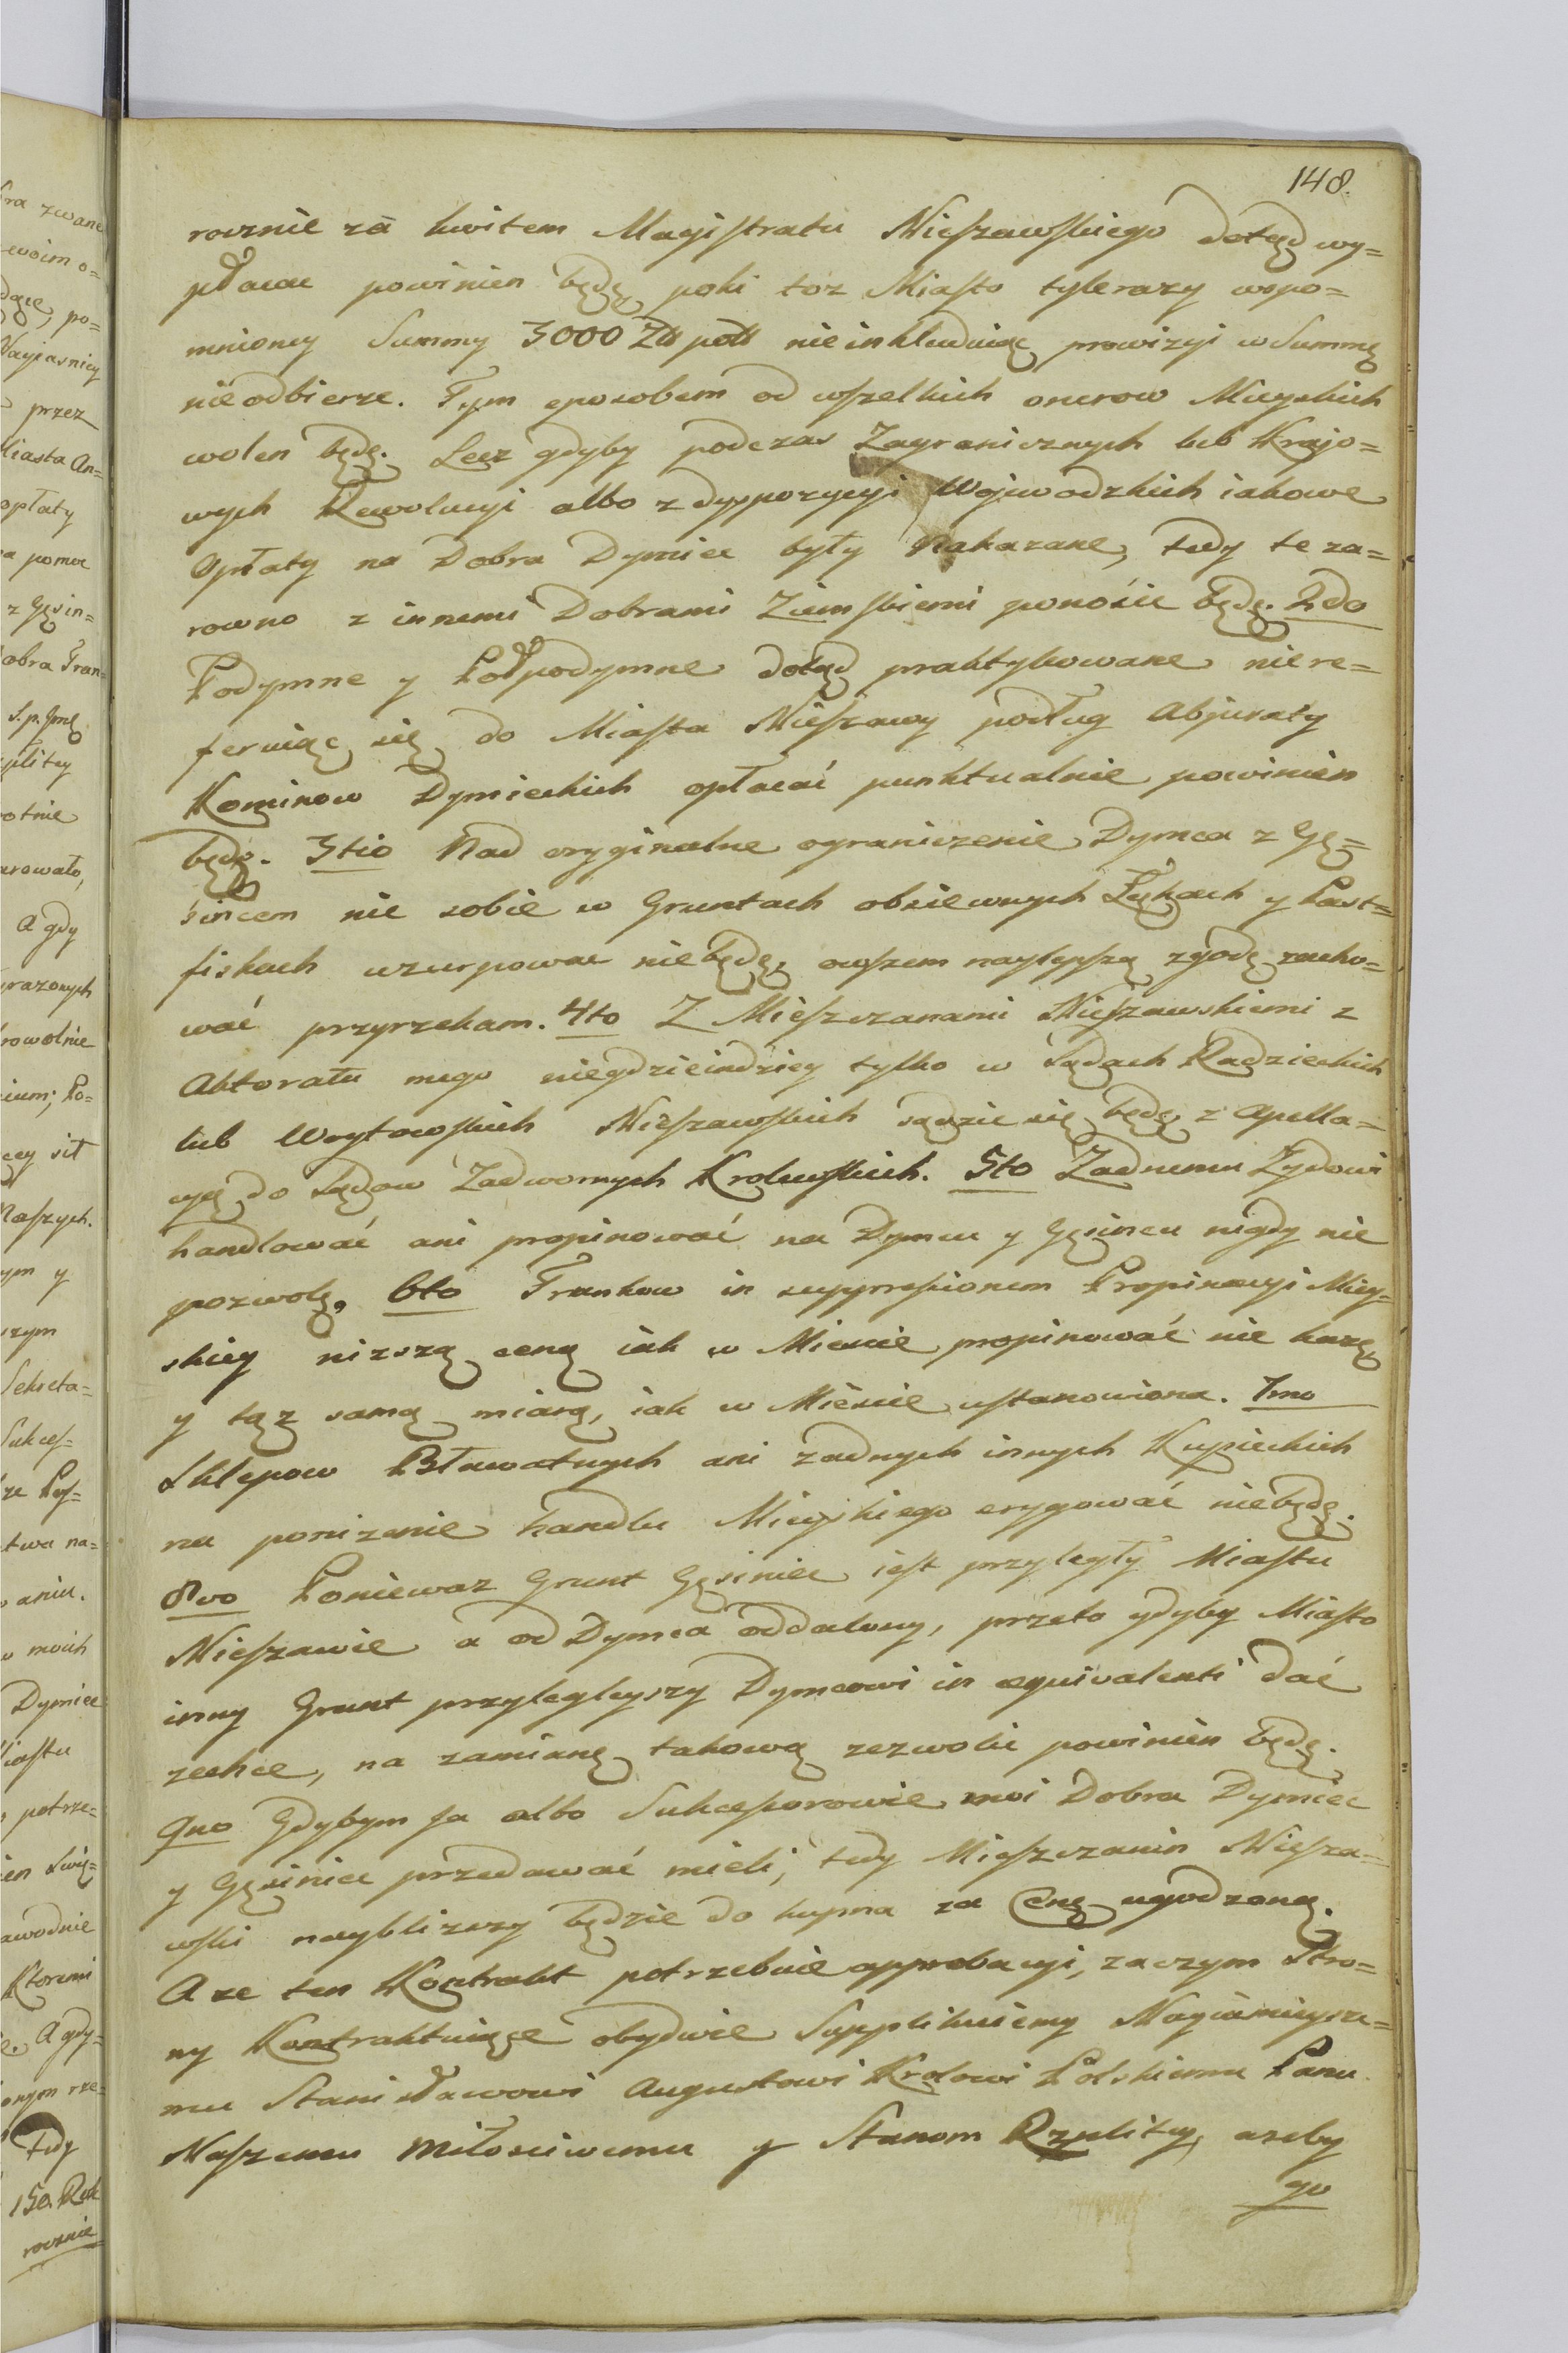 148.
rocznie za kwitem Magistratu Nieszawskiego dotąd wy=
płacac powinien będę, poki toz Miasto tylerazy wspo=
mnioney Summy 3000 Zł poll nieinkluduiąc prowizyi w Summę
nieodbierze. Tym sposobem od wszelkich onerow Mieyskich
wolen będę. Lecz gdyby podczas Zagranicznych lub Krajo=
wych Rewolucyi albo z dyspozycyi Wojewodzkich iakowe
Opłaty na Dobra Dymiec były Nakazane, tedy te za=
rowno z innemi Dobrami Ziemskiemi ponośić będę. 2do
Podymne y Połpodymne dotąd praktykowane niere=
feruiąc się do Miasta Nieszawy podług Abjuraty
Kominow Dymieckich opłacać punktualnie powinien
będę. 3tio Nad oryginalne ograniczenie Dymca z Gę=
śińcem nic sobie w Gruntach obsiewnych Łąkach y Past=
fiskach uzurpowac niebędę, owszem naylepszą zgodę zacho=
wać przyrzekam. 4to Z Mieszczanami Nieszawskiemi z
Aktoratu mego niegdzieindziey tylko w Sądach Radzieckich
lub Woytowskich Nieszawskich sądzic się będę z Apella=
cyą do Sądow Zadwornych Krolewskich. 5to Zadnemu Zydowi
handlować ani propinować na Dymcu y Gęsincu nigdy nie
pozwolę. 6to Trunkow in suppressionem Propinacyi Miey=
skiey nizszą ceną iak w Miescie propinować nie karzę,
y tąz samą miarą, iak w Miescie ustanowiona. 7mo
Sklepow Bławatnych ani zadnych innych Kupieckich
na ponizenie handlu Mieyskiego erygować niebędę.
8vo Poniewaz Grunt Gęsiniec iest przyległy Miastu
Nieszawie a od Dymca oddalony, przeto gdyby Miasto
inny Grunt przylegleyszy Dymcowi in equivalenti dać
zechce, na zamianę takową zezwolic powinien będę.
9no Gdybym Ja albo Sukcessorowie moi Dobra Dymiec
y Gęsiniec przedawać mieli, tedy Mieszczanin Niesza=
wski nayblizszy będzie do kupna za Cenę ugodzoną.
A ze ten Kontrakt potrzebuie approbacyi, zaczym Stro=
ny Kontraktuiące obydwie Supplikuiemy Nayiasnieysze=
mu Stanisławowi Augustowi Krolowi Polskiemu Panu
Naszemu Miłosciwemu y Stanom Rzplitey, azeby
go